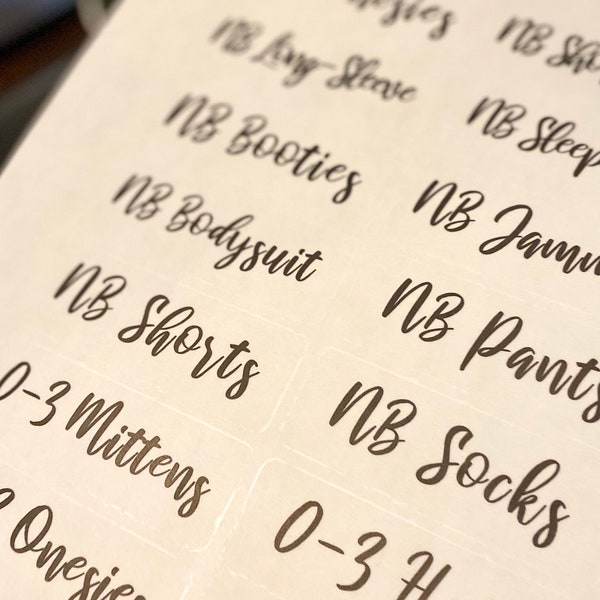 NB Long-Sleeve
NB Booties
NB Bodysuit
NB Shorts
0-3 Mittens
Onesies
NB Sho
NB Sleep
NB Jamm
NB Pants
NB Socks
0-3 H